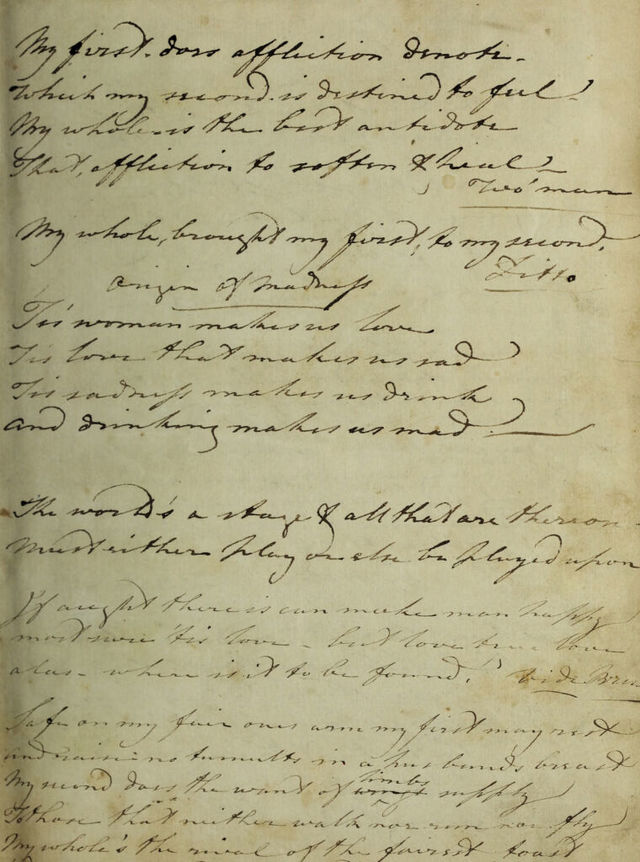 My first does affliction denote.
Which my second is destined to feel
My whole is the best antidote
That, affliction to soften & heal
Wo' man
My whole, brought my first, to my second.
Ditto
Origin of Madness
Tis woman makes us love
Tis love that makes us sad
Tis sadness makes us drink
And drinking makes us mad.
The world's a stage & all that are thereon
Must either play or else be played upon
If aught there is can make man happy
most sure 'tis love - but love true love
alas - where is it to be found!" vide
Safe on my fair ones arm my first may rest
and raise no tumults in a husbands breast
My second does the want of wings limbs supply
To those that neither walk nor run nor fly
My whole's the rival of the fairest toast